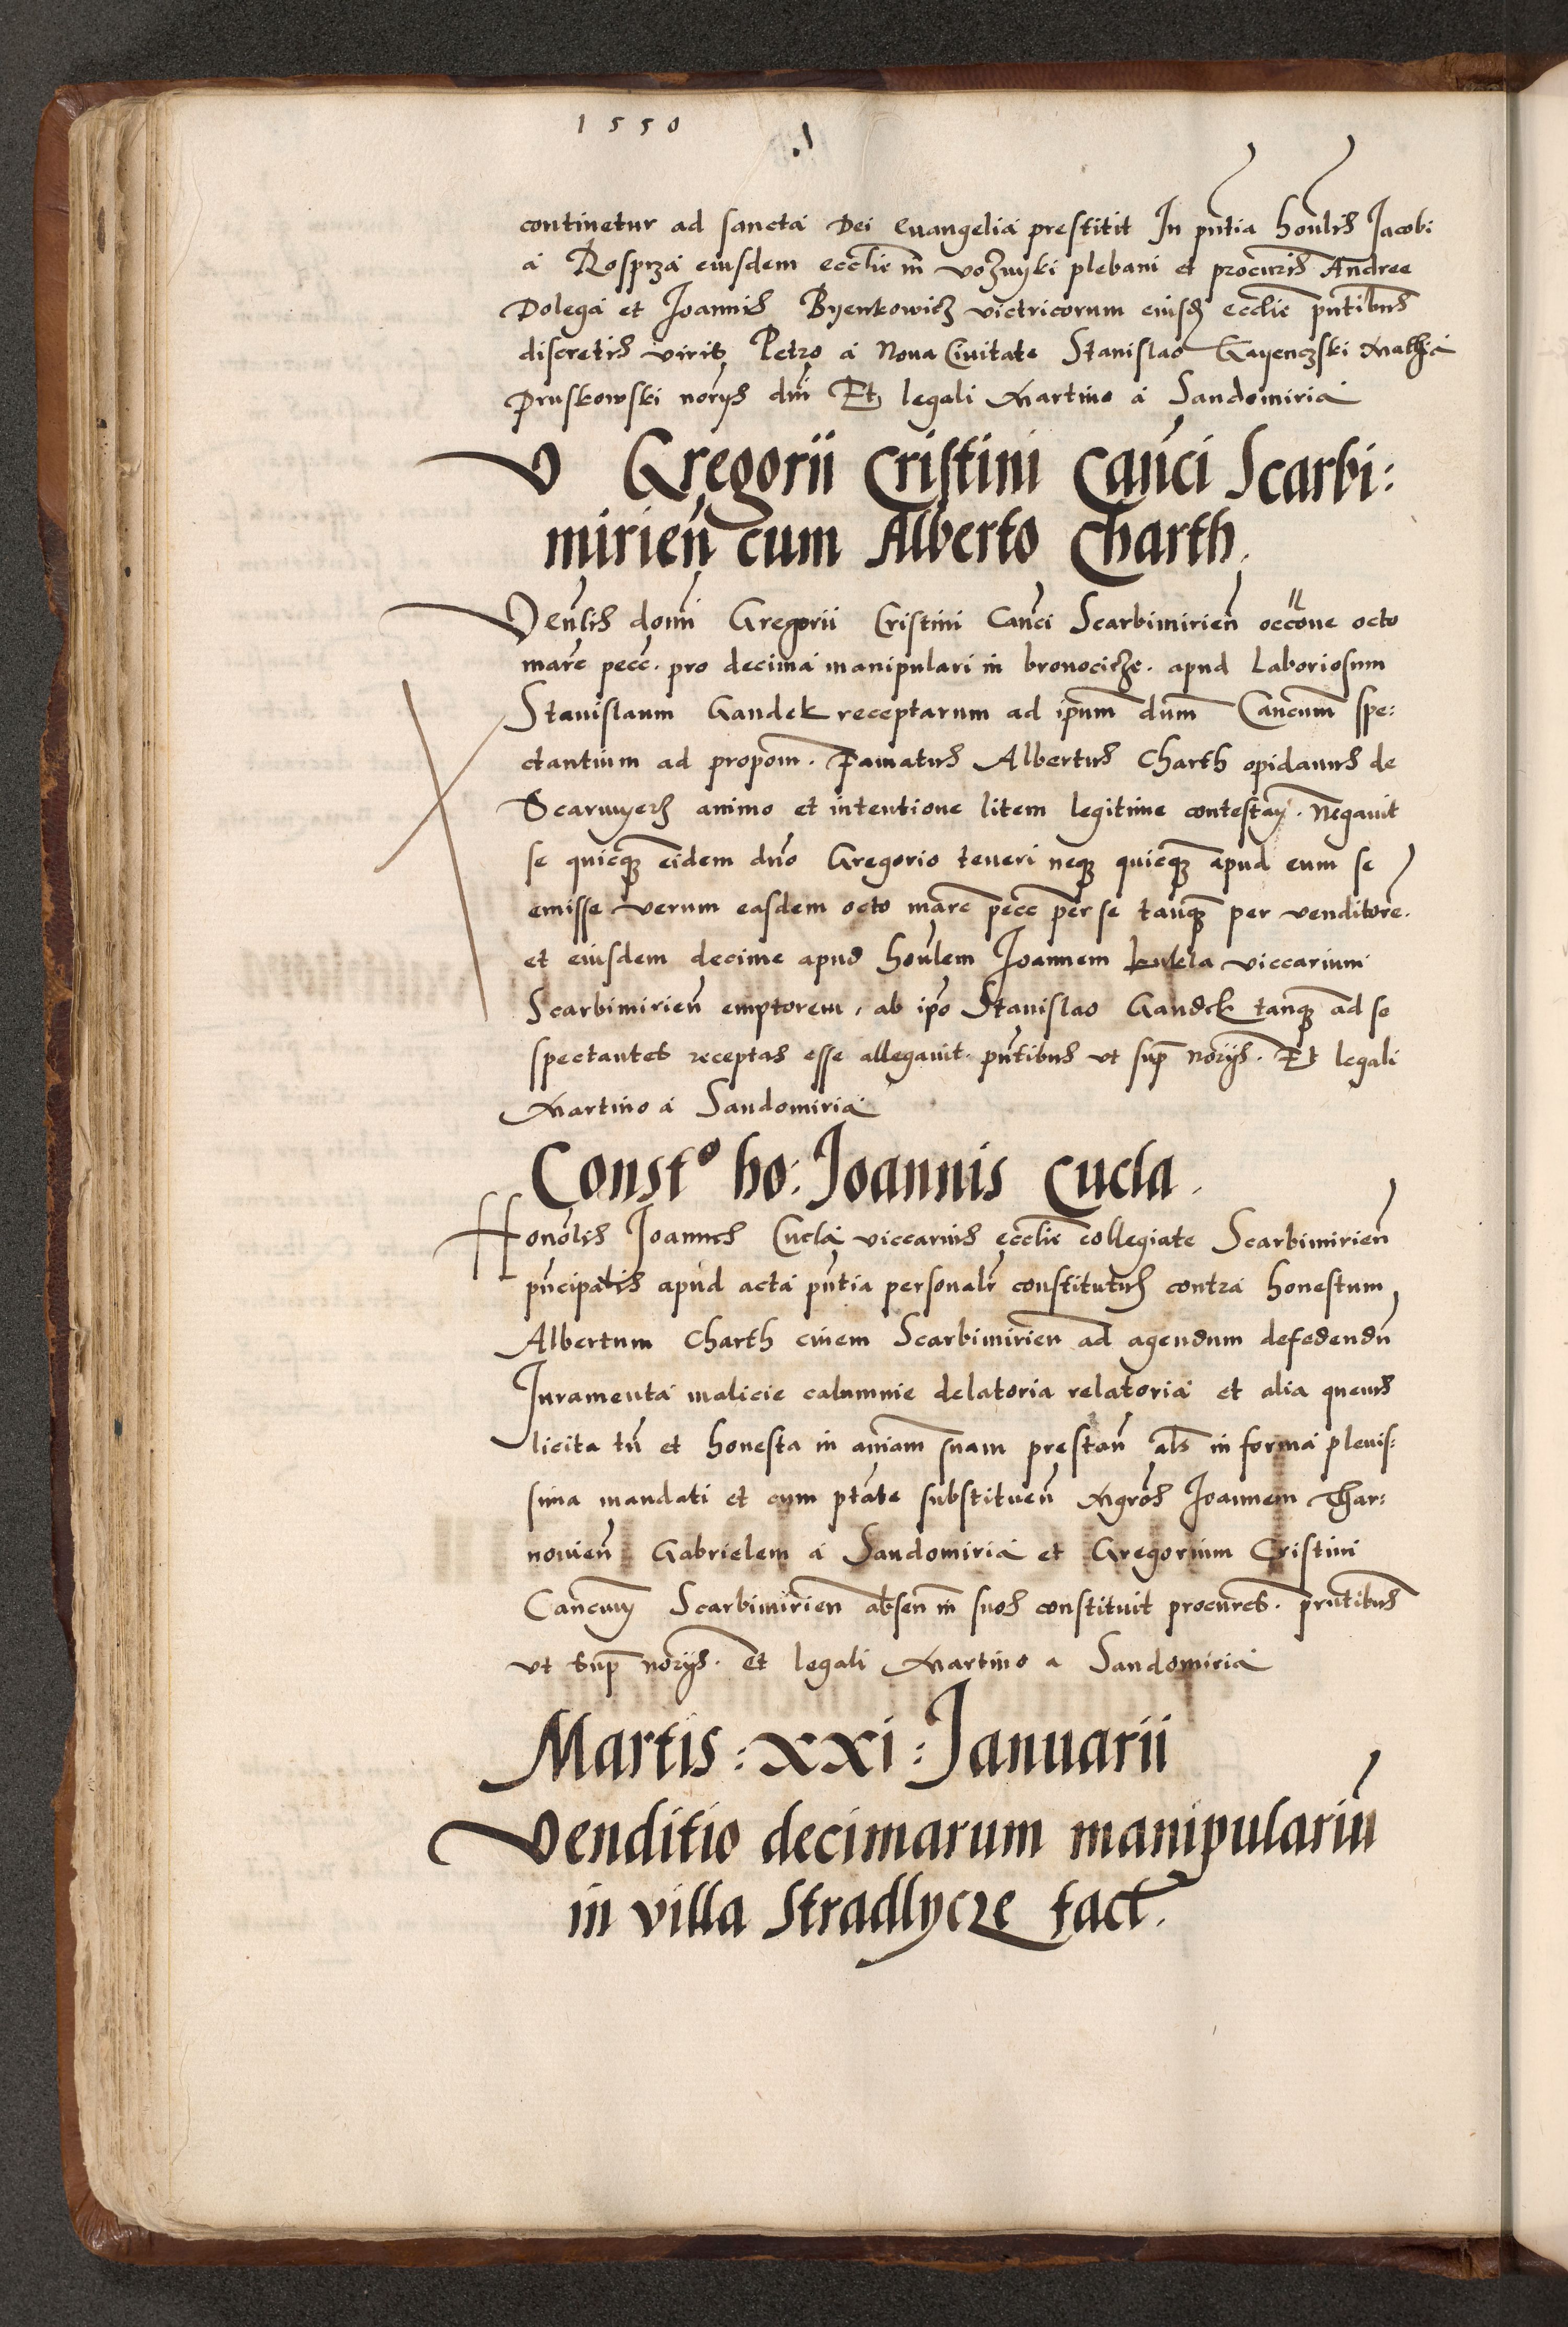 1550
continetur ad sancta Dei Euangelia prestitit In pñtia hoñlis Jacobi
a Rosprza eiusdem ecclie in vozniki plebani et procuris Andree
Dolega et Joannis Byenkowicz victricorum eiusd ecclie pñtibus
discretis viris Petro a Noua Ciuitate Stanislao Gayenczski Mathia
Pruskowski noriis dñi Et legali Martino a Sandomiria
V Gregorii Cristini Cañci Scarbi:
mirieñ cum Alberto Charth.
Veñlis domi Gregorii Cristini Cañci Scarbimirieñ occõne octo
marc pecc. pro decima manipulari in bronocicze. apud Laboriosum
Stanislaum Gandek receptarum ad ipum dum Cancum spe:
ctantium ad propom. Famatus Albertus Charth opidanus de
Scarmyerz animo et intentione litem legitime contestan. Negauit
se quicq eidem dño Gregorio teneri neq quicq apud eum se
emisse verum easdem octo marc pecc per se tanq per venditore.
et eiusdem decime apud hoñlem Joannem kukla viccarium
Scarbimirieñ emptorem, ab ipo Stanislao Gandek tanq ad se
spectantes receptas esse allegauit. pñtibus vt sup noriis. Et legali
Martino a Sandomiria
Const° ho: Joannis Cucla.
Honolis Joannes Cucla viccarius ecclie collegiate Scarbimirieñ
pñcipalis apud acta pñtia personalr constitutus contra honestum
Albertum Charth ciuem Scarbimirien ad agendum defedendũ
Juramenta malicie calumnie delatoria relatoria et alia queuis
licita tñ et honesta in aniam suam prestañ als in forma plenis:
sima mandati et cum ptate substitueñ Mgros Joannem Thar:
nouieñ Gabrielem a Sandomiria et Gregorium Cristini
Cancum Scarbimirien absen in suos constituit procures. pñtibus
vt sup noriis. et legali Martino a Sandomiria
Martis: xxi: Januarii
Venditio decimarum manipulariũ
in villa Stradlycze fact.